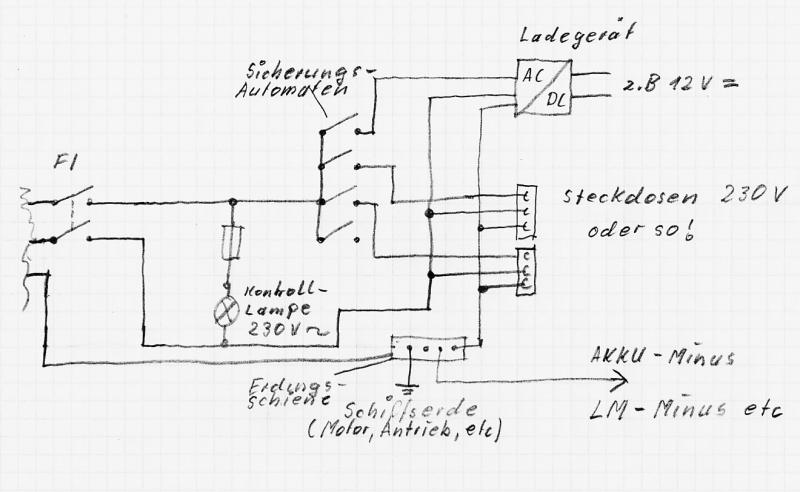 Ladegerät
Sicherungs-
Automaten
AC
DC
z.B 12 V =
FI
Steckdosen 230 V
oder so!
Kontroll-
Lampe
230V~
Erdungs-
schiene
Schiffserde
(Motor, Antrieb, etc)
AKKU-Minus
LM-Minus etc